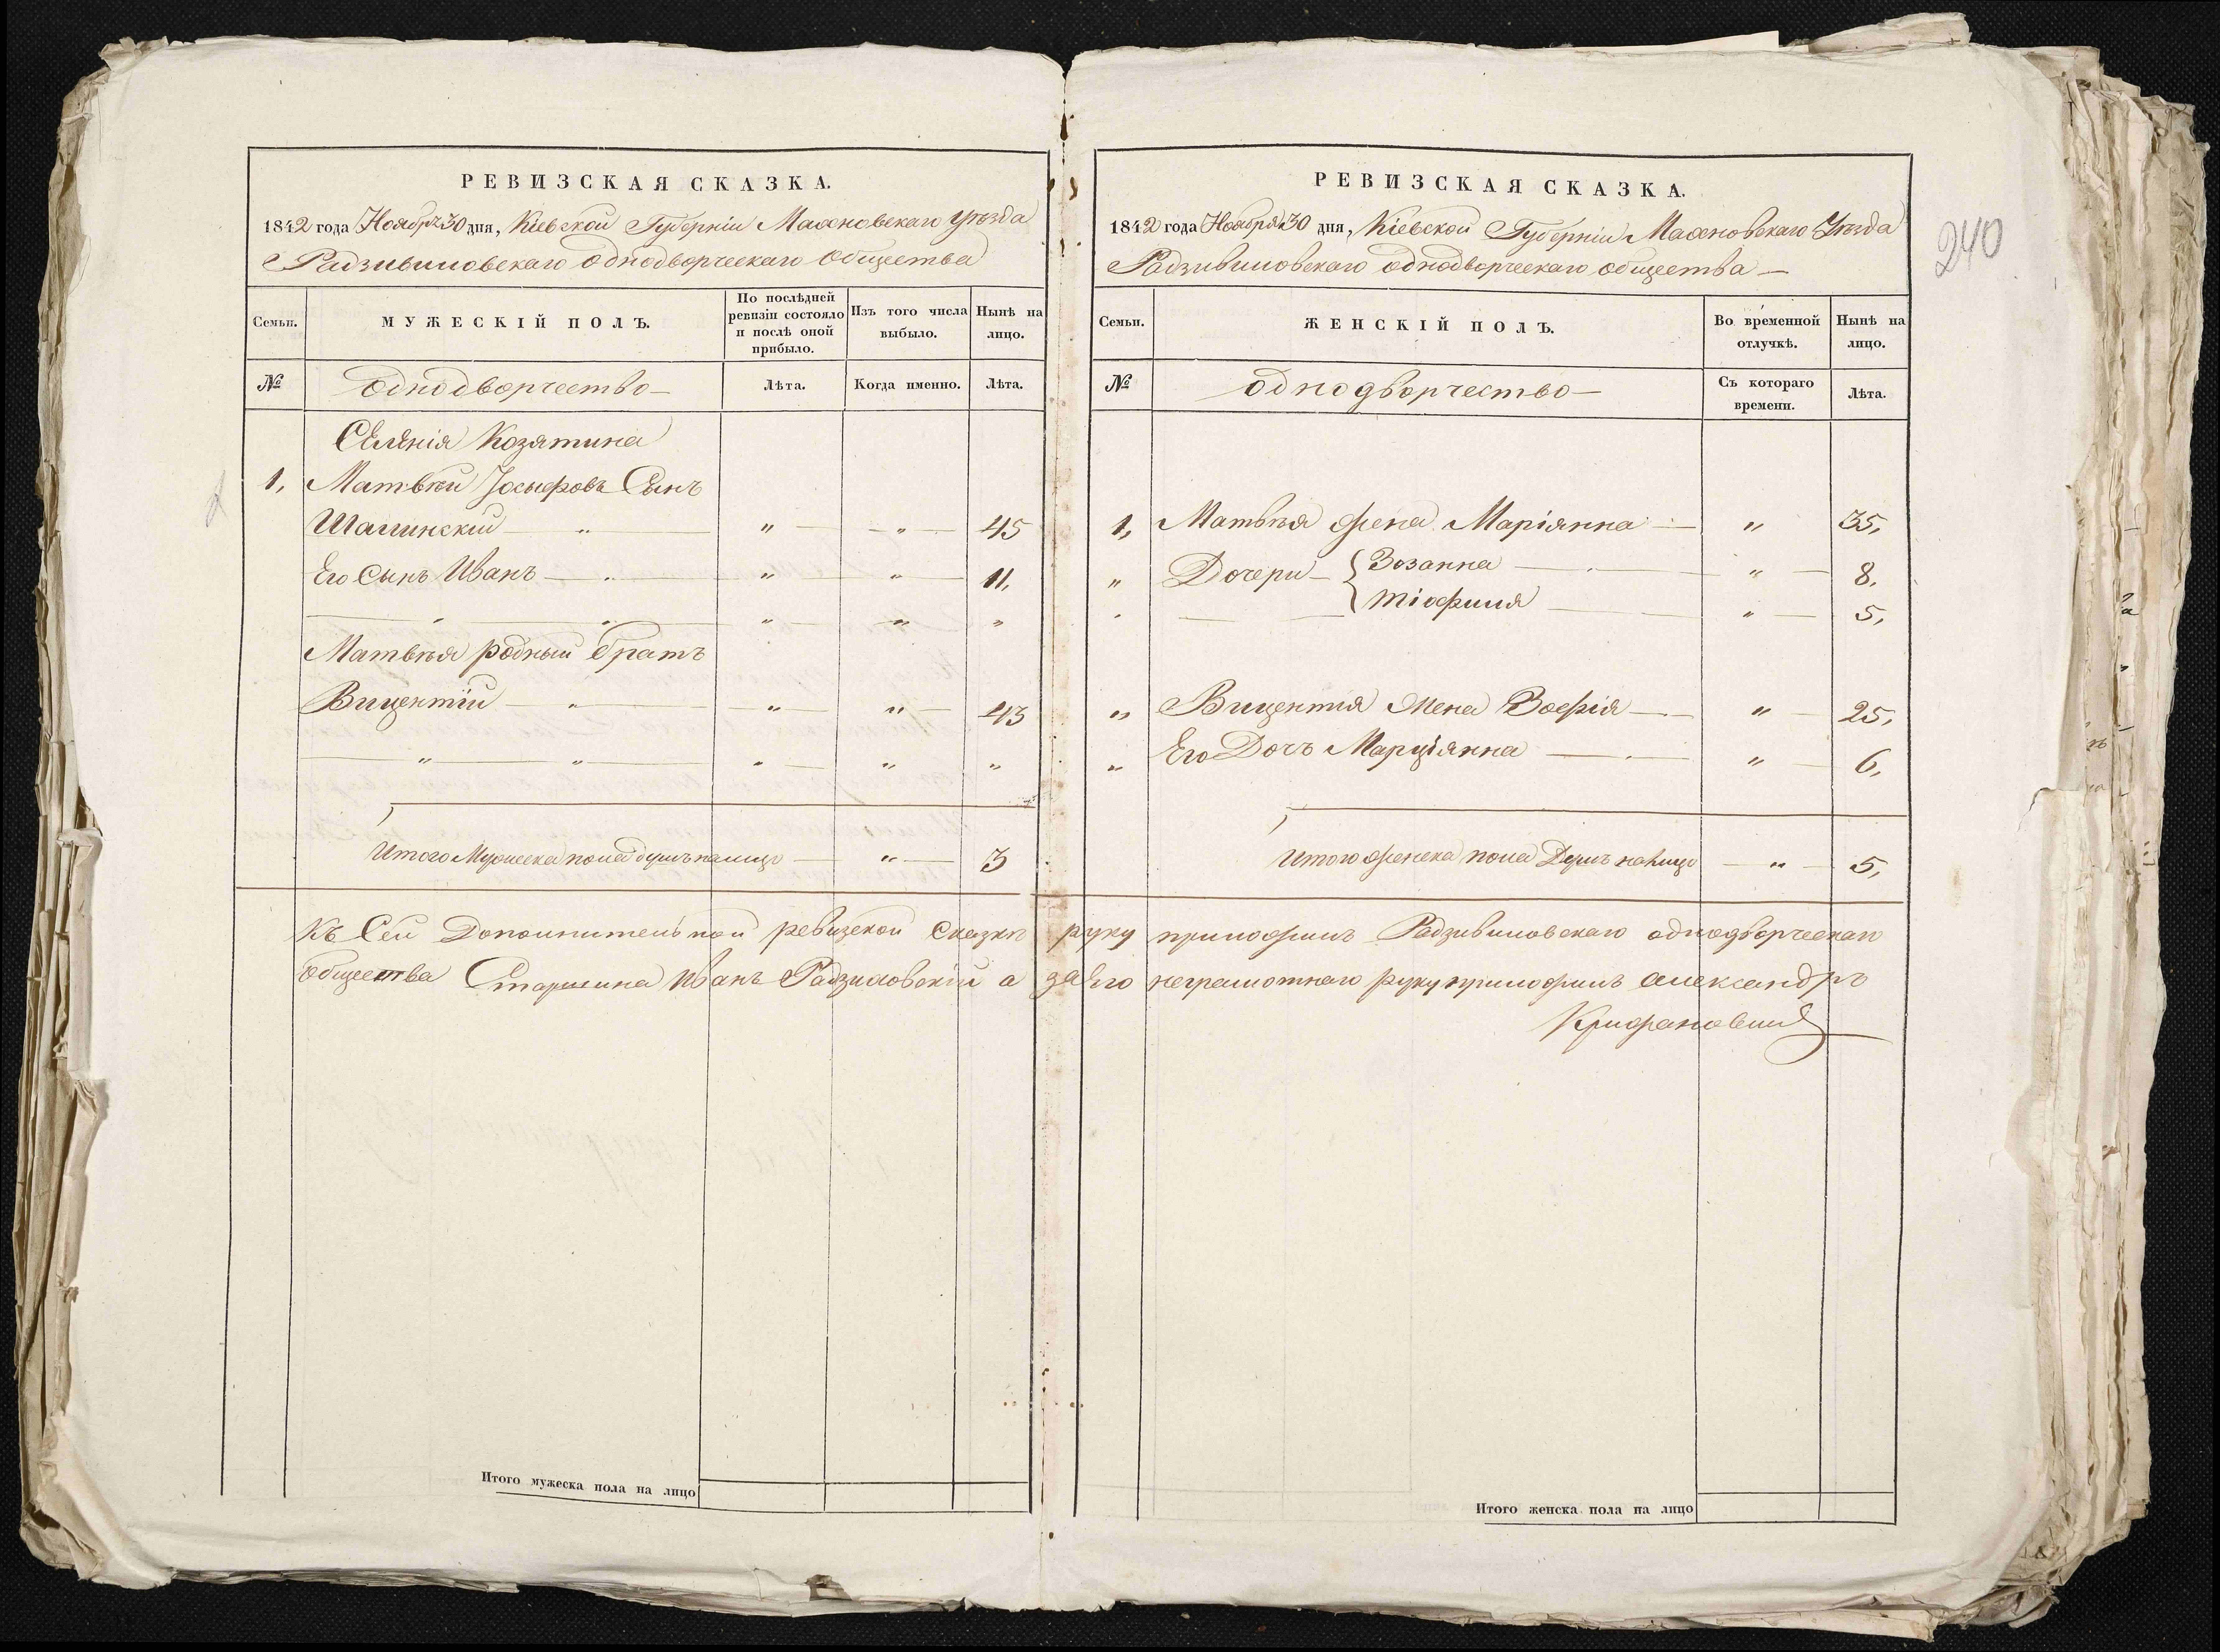 РЕВИЗСКАЯ СКАЗКА.
1842 года Ноября 30 дня, Кіевской Губерніи Махновскаго Уѣзда
Радзивиловскаго однодворческаго общества
Семьи.
МУЖЕСКІЙ ПОЛЪ.
По послѣдней ревизіи состояло и послѣ оной прибыло.
Изъ того числа выбыло.
Нынѣ на лицо.
№
однодворчество
Лѣта.
Когда именно.
Лѣта.
Селенія Козятина
1, Матвѣй Іосыфовъ Сынъ
Шалинскій — „ — „ — „ — 45
Его Сынъ Иванъ — „ — „ — „ — 11,
„ „ „ „ „
Матвѣя родный братъ
Вицентій — „ — „ — „ — 43
„ „ „ „ „
Итого Мужеска пола душъ налицо — „ — 3
РЕВИЗСКАЯ СКАЗКА.
1842 года Ноября 30 дня, Кіевской Губерніи Махновскаго Уѣзда
Радзивиловскаго однодворческаго общества —
Семьи.
ЖЕНСКІЙ ПОЛЪ.
Во временной отлучкѣ.
Нынѣ на лицо.
№
однодворчество
Съ котораго времени.
Лѣта.
240
1, Матвѣя жена Маріянна — „ 35,
„ Дочери { Зозанна — „ — 8.
Тіофиля — „ — 5,
„ Вицентія Жена Зофія — „ — 25,
„ Его Дочъ Марціянна — „ — 6,
Итого женска пола Душъ налицо — „ — 5,
Къ Сей Дополнительной ревизской Сказкѣ руку приложилъ Радзивиловскаго однодворческаго
общества Старшина Иванъ Радзиловскій а за его неграмотнаго руку приложилъ Александръ
Крижановскій
Итого мужеска пола на лицо
Итого женска пола на лицо